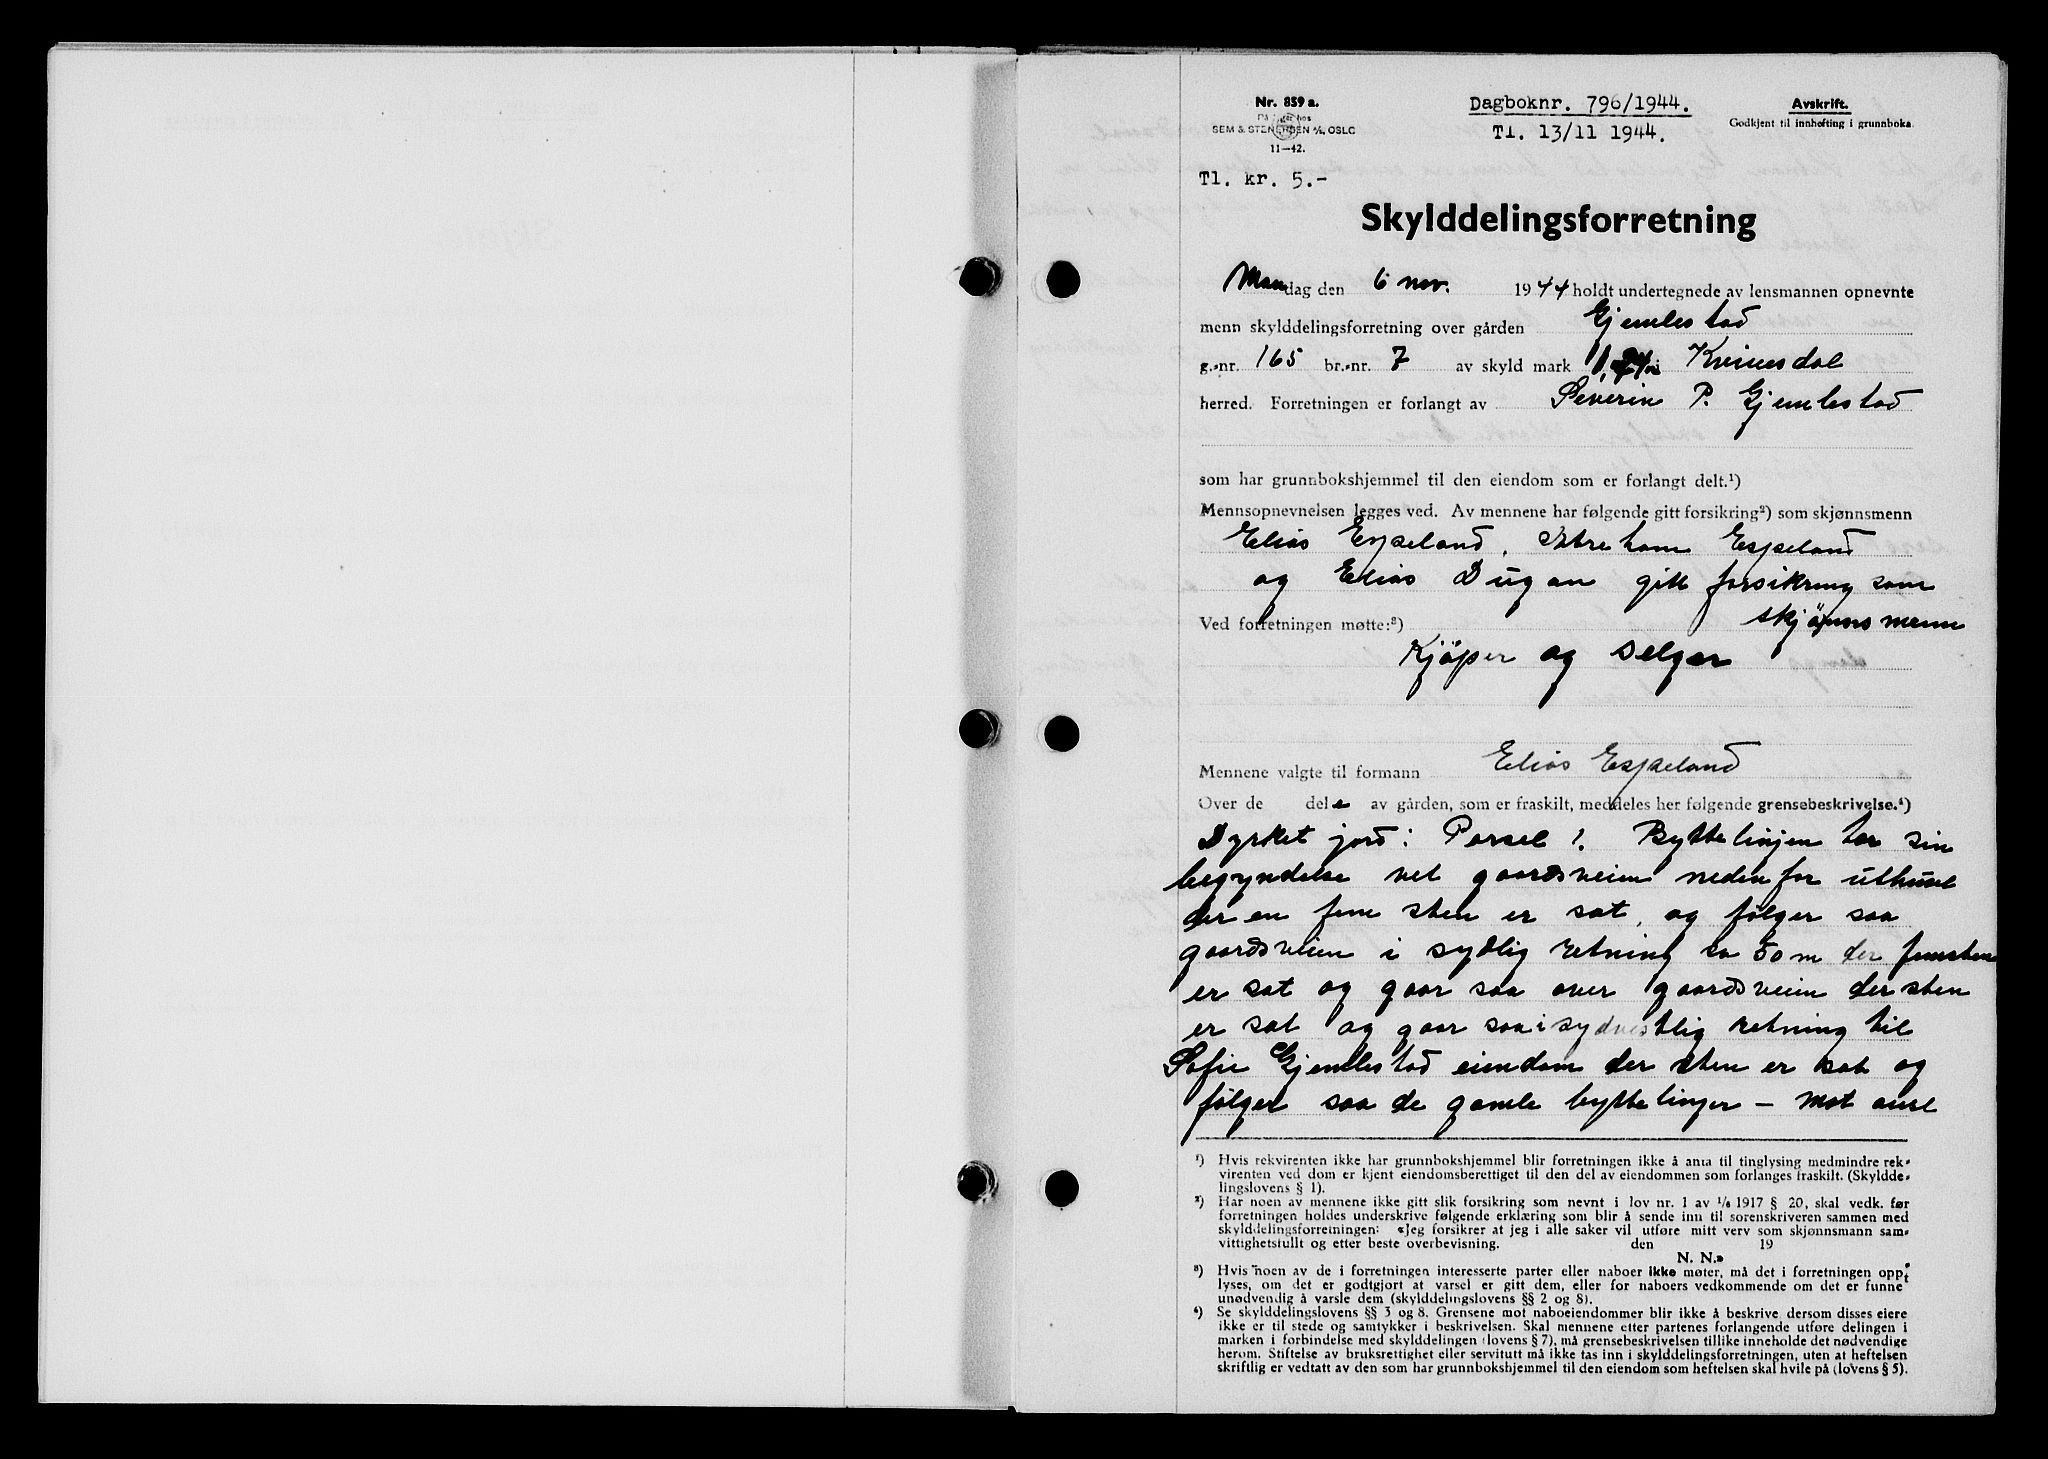 Nr. 859 a.
På lager hos
SEM & STENERSEN A/S, OSLO
11—42.
Dagboknr. 796/1944.
Tl. 13/11 1944.
Avskrift.
Godkjent til innhefting i grunnboka.
Tl. kr. 5.-
Skylddelingsforretning
Mandag den 6 nov. 1944 holdt undertegnede av lensmannen opnevnte
menn skylddelingsforretning over gården Gjemlestad
g.-nr. 165 br.-nr. 7 av skyld mark i Kvinesdal
herred. Forretningen er forlangt av Severin P. Gjemlestad
som har grunnbokshjemmel til den eiendom som er forlangt delt.¹)
Mennsopnevnelsen legges ved. Av mennene har følgende gitt forsikring²) som skjønnsmenn
Elias Espeland, Abreham Espeland
og Elias Dugan gitt forsikring som
skjønsmenn
Ved forretningen møtte:³)
Kjöper og selger
Mennene valgte til formann Elias Espeland
Over de dele av gården, som er fraskilt, meddeles her følgende grensebeskrivelse.⁴)
Dyrket jord: Parsel 1. Byttelinjen tar sin
begyndelse vet gaardsveien nedenfor uthuset
der en fem sten er sat, og følger saa
gaardsveien i sydlig retning ca 50 m der femsten
er sat og gaar saa over gaardsveien der sten
er sat og gaar saa i sydvestlig retning til
Sofie Gjemlestad eiendom der sten er sat og
følger saa de gamle byttelinjer — Mot aust
¹) Hvis rekvirenten ikke har grunnbokshjemmel blir forretningen ikke å anta til tinglysing medmindre rek-
virenten ved dom er kjent eiendomsberettiget til den del av eiendommen som forlanges fraskilt. (Skyldde-
lingslovens § 1).
²) Har noen av mennene ikke gitt slik forsikring som nevnt i lov nr. 1 av 1/6 1917 § 20, skal vedk. før
forretningen holdes underskrive følgende erklæring som blir å sende inn til sorenskriveren sammen med
skylddelingsforretningen: «Jeg forsikrer at jeg i alle saker vil utføre mitt verv som skjønnsmann sam-
vittighetsfullt og etter beste overbevisning. den 19
N. N.»
³) Hvis noen av de i forretningen interesserte parter eller naboer ikke møter, må det i forretningen opp-
lyses, om det er godtgjort at varsel er gitt dem, eller for naboers vedkommende om det er funnet
unødvendig å varsle dem (skylddelingslovens §§ 2 og 8).
⁴) Se skylddelingslovens §§ 3 og 8. Grensene mot naboeiendommer blir ikke å beskrive dersom disses eiere
ikke er til stede og samtykker i beskrivelsen. Skal mennene etter partenes forlangende utføre delingen i
marken i forbindelse med skylddelingen (lovens § 7), må grensebeskrivelsen tillike inneholde det nødvendige
herom. Stiftelse av bruksrettighet eller servitutt må ikke tas inn i skylddelingsforretningen, uten at heftelsen
skriftlig er vedtatt av den som har grunnbokshjemmel til den eiendom som heftelsen skal hvile på (lovens § 5).